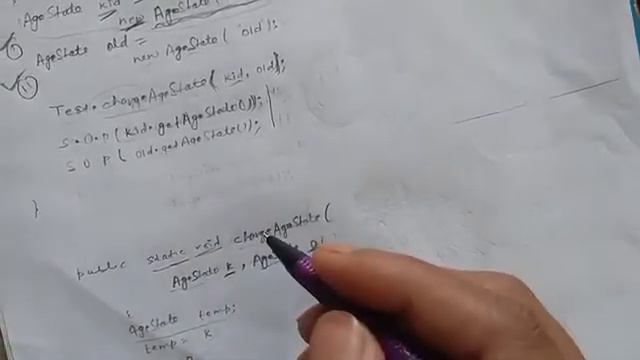 AgeState kid =
new AgeState
① AgeState old =
new AgeState( 'old');
⑪
Test.changeAgeState( kid, old);
S.O.P( kid.getAgeState());
S.O.P( old.getAgeState());
}
public static void changeAgeState(
AgeState k, Age
{
AgeState temp;
temp = k